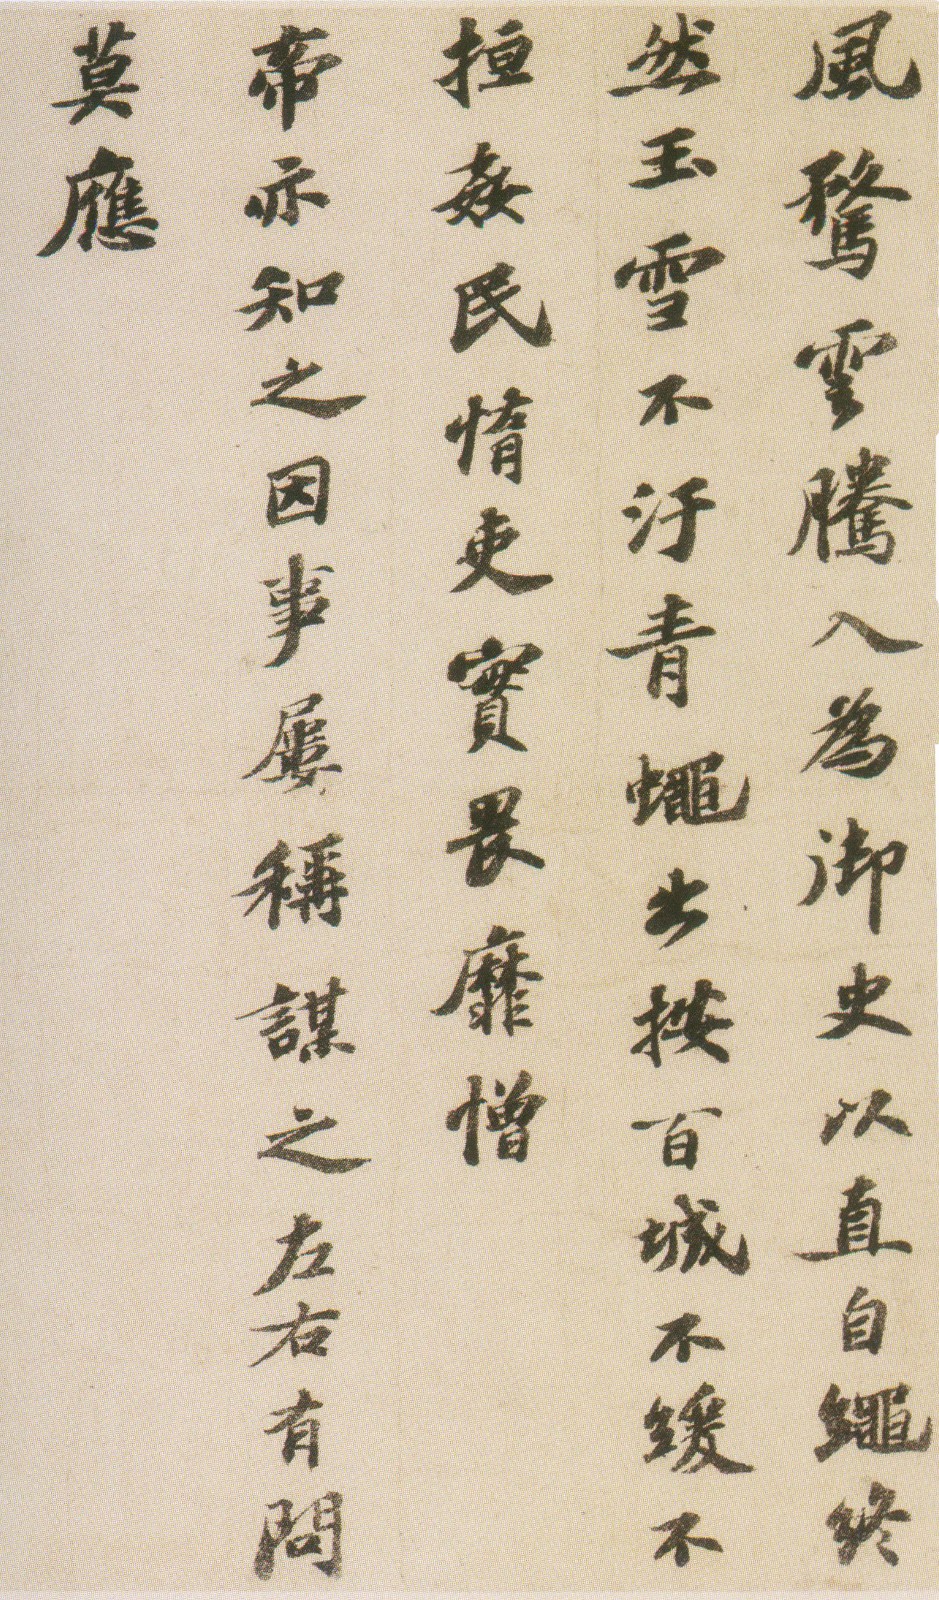 風騖雲騰入為御史以直自繩終
然玉雪不汙青蠅出按百城不緩不
搄姦民惰吏實畏靡憎
帝亦知之因事屢稱謀之左右有問
莫應